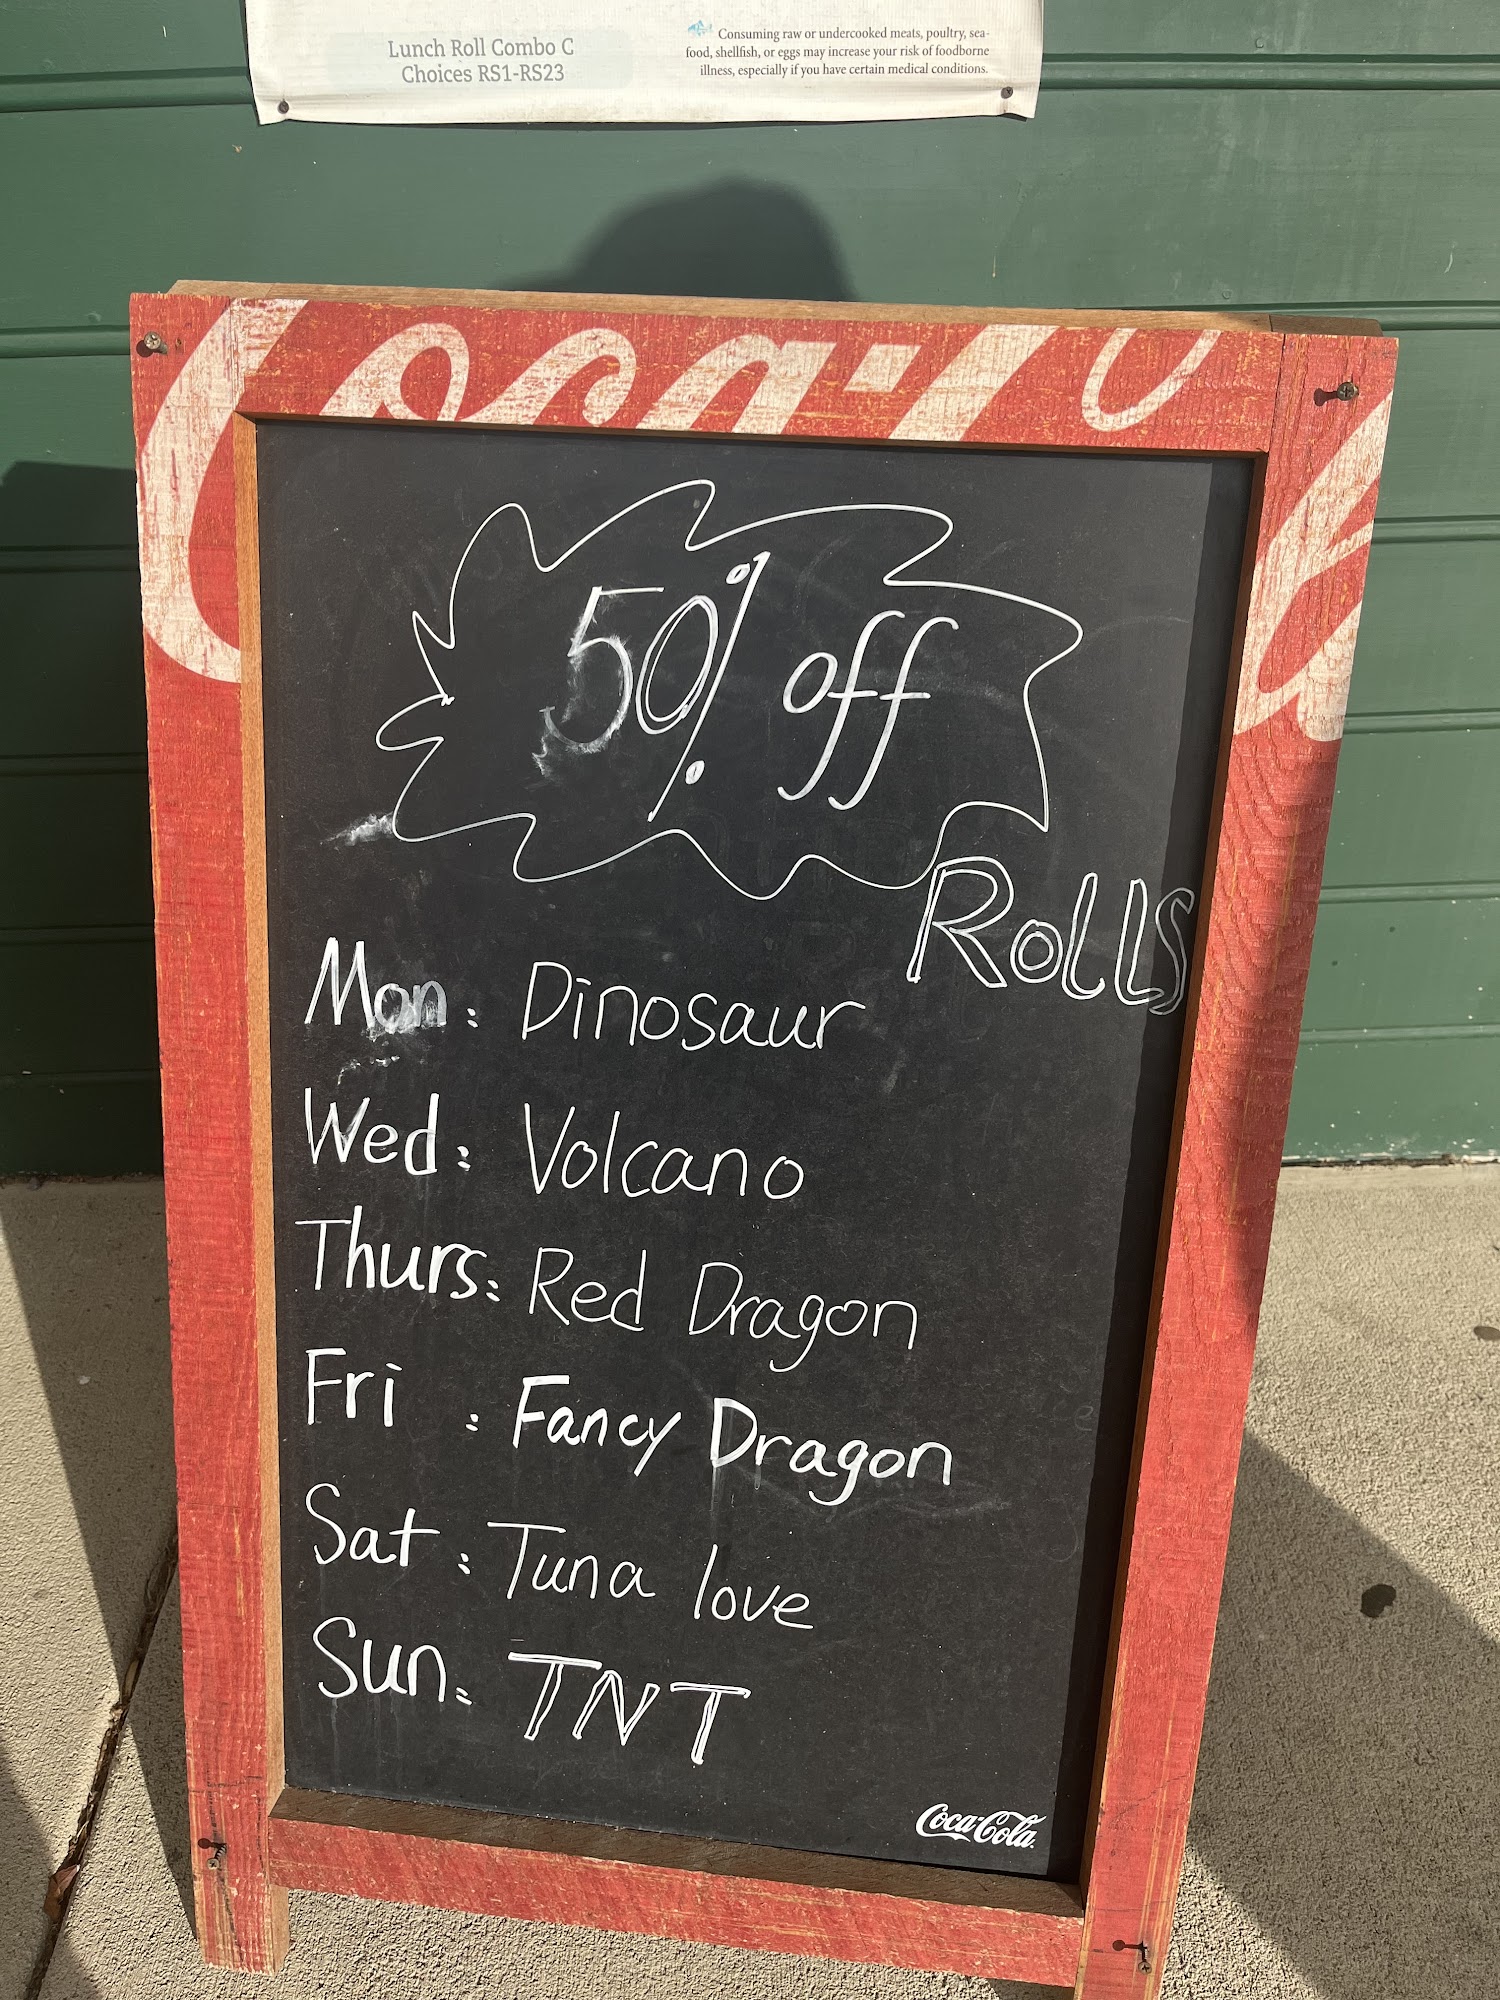 Lunch Roll Combo C
Choices RS1-RS23
Consuming raw or undercooked meats, poultry, sea-
food, shellfish, or eggs may increase your risk of foodborne
illness, especially if you have certain medical conditions.
Coca-Cola
50% off
ROLLS
Mon: Dinosaur
Wed: Volcano
Thurs: Red Dragon
Fri : Fancy Dragon
Sat : Tuna love
Sun: TNT
Coca-Cola